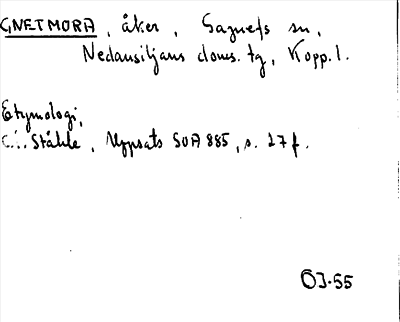 GNETMORA, åker, Gagnefs sn,
Nedansiljans doms. tg, Kopp. l.
Etymologi,
C.I. Ståhle, Uppsats SOA 885, s. 27 f.
ÖJ-55